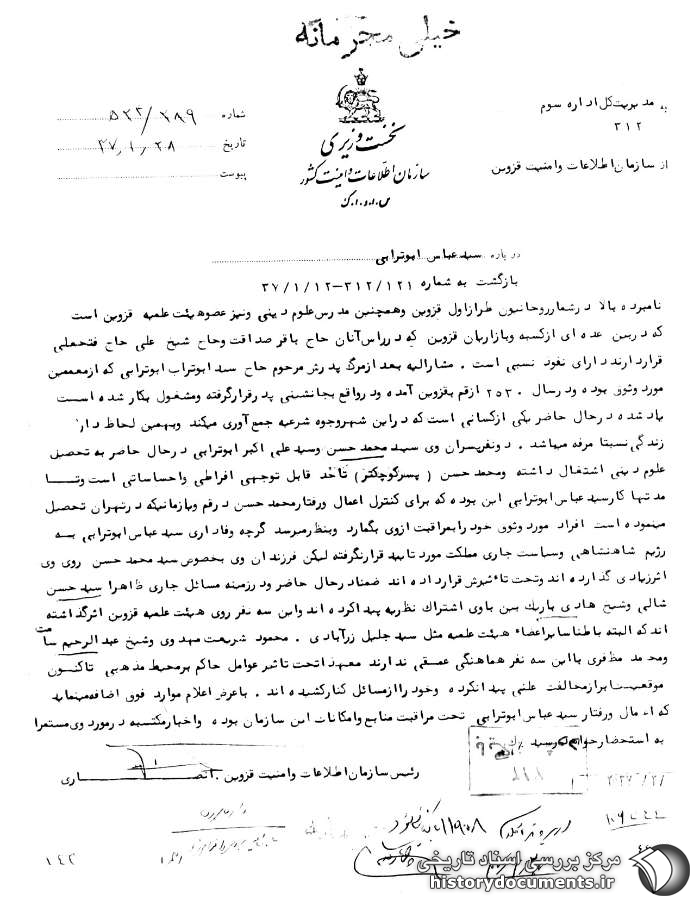 خیلی محرمانه
به مدیریت کل اداره سوم
۳۱۲
از سازمان اطلاعات و امنیت قزوین
نخست وزیری
سازمان اطلاعات و امنیت کشور
س.ا.و.ا.ک
شماره ۵۲۲/۳۸۹
تاریخ ۳۷/۱/۲۸
پیوست
درباره سید عباس ابوترابی
بازگشت به شماره ۳۱۲/۱۲۱-۳۷/۱/۱۲
نامبرده بالا در شمار روحانیون طراز اول قزوین وهمچنین مدرس علوم دینی ونیز عضو هیئت علمیه قزوین است
که دربین عده ای ازکسبه وبازاریان قزوین که درراس آنان حاج باقر صداقت وحاج شیخ علی حاج فتحعلی
قراردارند دارای نفوذ نسبی است . مشارالیه بعد ازمرگ پدرش مرحوم حاج سید ابوتراب ابوترابی که ازمعممین
مورد وثوق بوده ودرسال ۲۵۳۰ ازقم بقزوین آمده ودرواقع بجانشینی پدر قرارگرفته ومشغول بکار شده است
یاد شده درحال حاضر یکی ازکسانی است که دراین شهر وجوه شرعیه جمع آوری میکند وبهمین لحاظ دارای
زندگی نسبتا مرفه میباشد . دونفرپسران وی سید محمد حسن وسید علی اکبر ابوترابی درحال حاضر به تحصیل
علوم دینی اشتغال داشته ومحمد حسن (پسرکوچکتر) تاحد قابل توجهی افراطی واحساساتی است وتا
مدتها کارسید عباس ابوترابی این بوده که برای کنترل اعمال ورفتارمحمد حسن درقم ویازمانیکه درتهران تحصیل
مینموده است افراد مورد وثوق خود رابمراقبت ازوی بگمارد وبنظرمیرسد گرچه وفاداری سید عباس ابوترابی به
رژیم شاهنشاهی وسیاست جاری مملکت مورد تایید قرارنگرفته لیکن فرزندان وی بخصوص سید محمد حسن روی وی
اثرزیادی گذارده اند وتحت تاءثیرش قرارداده اند ضمنا درحال حاضر ودرزمینه مسائل جاری ظاهرا سید حسن
شالی وشیخ هادی باریک بین باوی اشتراک نظریه پیدا کرده اند واین سه نفر روی هیئت علمیه قزوین اثرگذاشته
اند که البته باطنا سایراعضاء هیئت علمیه مثل سید جلیل زرآبادی . محمود شریعت مهدوی وشیخ عبدالرحیم سامت
ومحمد مظفری بااین سه نفر هماهنگی عمیقی ندارند معهذا تحت تاثیر عوامل حاکم برمحیط مذهبی تاکنون
موقعیت ابراز مخالفت علنی پیدا نکرده وخود راازمسائل کنارکشیده اند . باعرض اعلام موارد فوق اضافه مینماید
که اعمال ورفتار سید عباس ابوترابی تحت مراقبت منابع وامکانات این سازمان بوده واخبارمکتسبه درمورد وی مستمرا
به استحضارخواهد رسید
رئیس سازمان اطلاعات وامنیت قزوین . انصاری
۱۴۲
مرکز بررسی اسناد تاریخی
historydocuments.ir